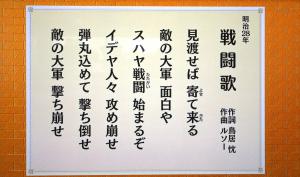 明治28年
戦闘歌
作詞 鳥居 忱
作曲 ルソー
見渡せば 寄て来る
よせ きた
敵の大軍 面白や
スハヤ戦闘 始まるぞ
たたかい
イデヤ人々 攻め崩せ
弾丸込めて 撃ち倒せ
敵の大軍 撃ち崩せ